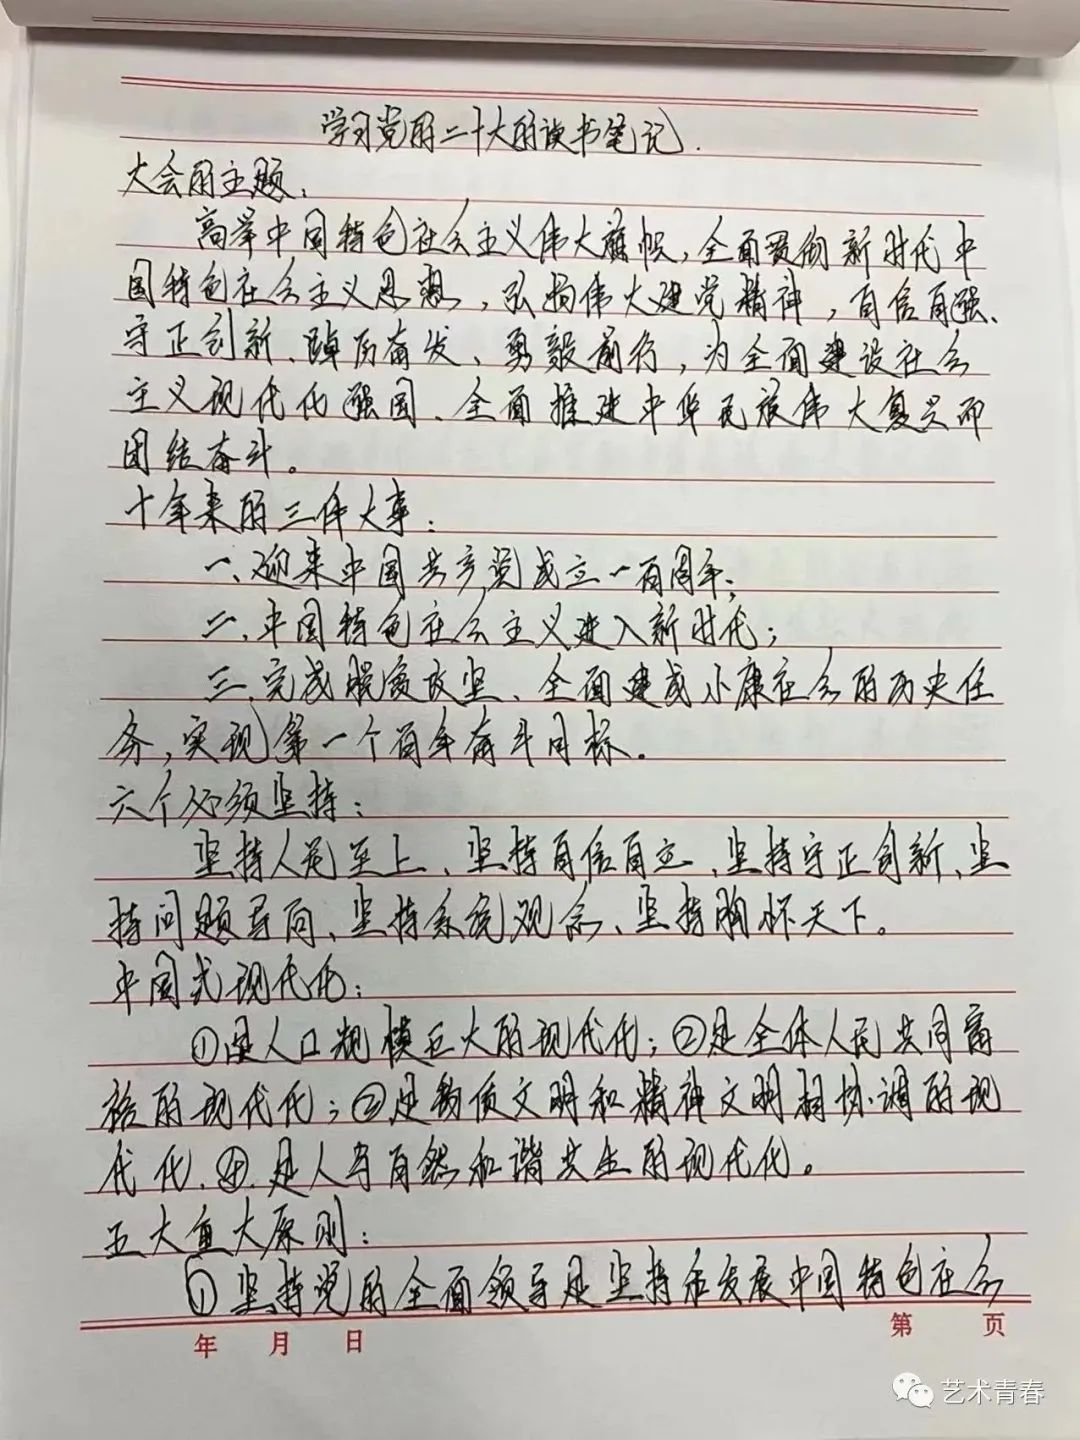 学习党的二十大的读书笔记.
大会的主题:
高举中国特色社会主义伟大旗帜,全面贯彻新时代中
国特色社会主义思想,弘扬伟大建党精神,自信自强、
守正创新、踔厉奋发、勇毅前行,为全面建设社会
主义现代化强国、全面推进中华民族伟大复兴而
团结奋斗。
十年来的三件大事:
一、迎来中国共产党成立一百周年;
二、中国特色社会主义进入新时代;
三、完成脱贫攻坚、全面建成小康社会的历史任
务,实现第一个百年奋斗目标。
六个必须坚持:
坚持人民至上、坚持自信自立、坚持守正创新、坚
持问题导向、坚持系统观念、坚持胸怀天下。
中国式现代化:
①是人口规模巨大的现代化;②是全体人民共同富
裕的现代化;③是物质文明和精神文明相协调的现
代化、④.是人与自然和谐共生的现代化。
五大重大原则:
①坚持党的全面领导是坚持和发展中国特色社会
年 月 日 第 页
艺术青春